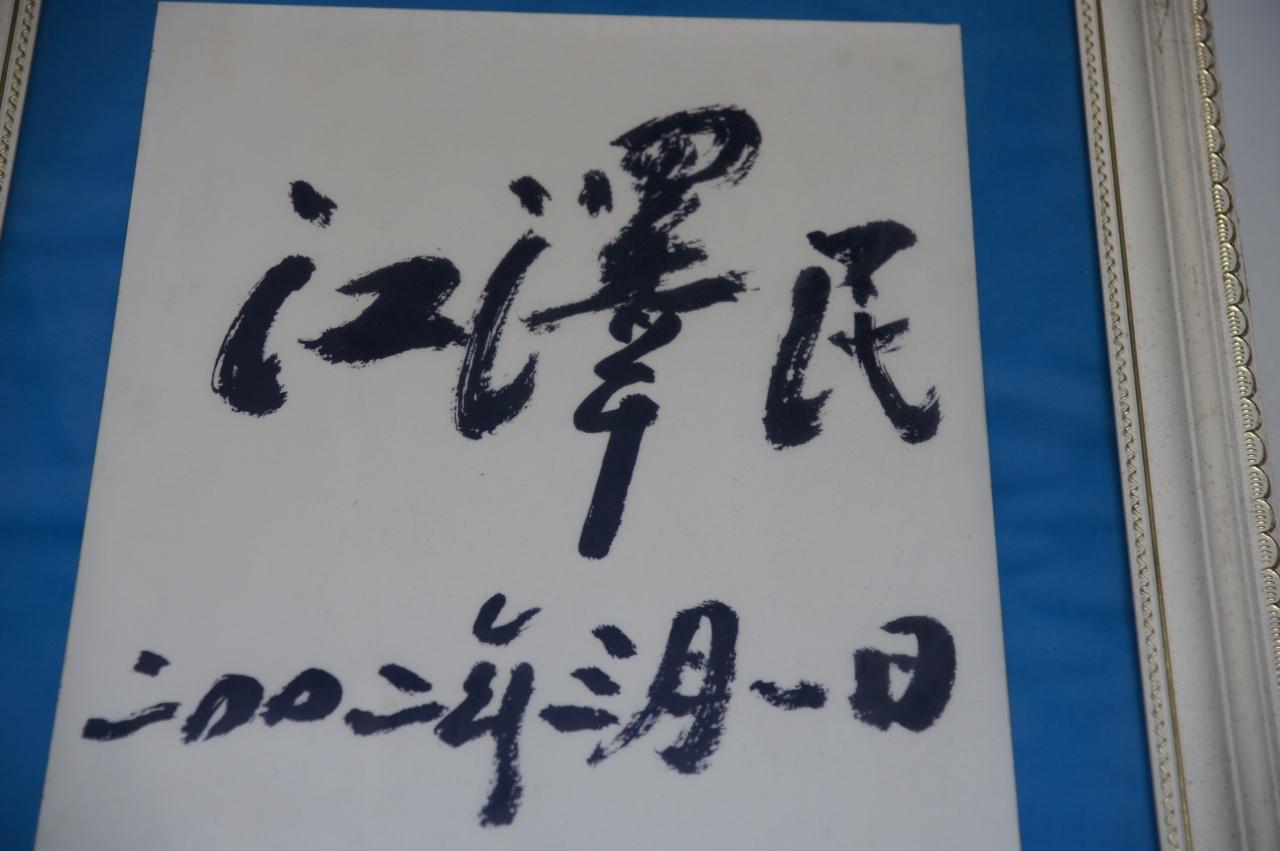 江澤民
二〇〇二年三月一日